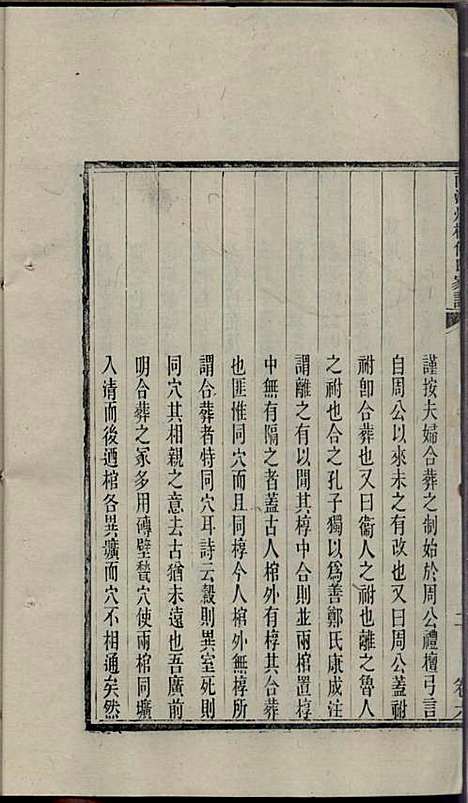 謹按夫婦合葬之制始於周公禮檀弓言
自周公以來未之有改也又曰周公蓋祔
祔卽合葬也又曰衞人之祔也離之魯人
之祔也合之孔子獨以爲善鄭氏康成注
謂離之有以閒其椁中合則並兩棺置椁
中無有隔之者蓋古人棺外有椁其合葬
也匪惟同穴而且同椁今人棺外無椁所
謂合葬者特同穴耳詩云穀則異室死則
同穴其相親之意去古猶未遠也吾廣前
明合葬之冢多用磚壁甃穴使兩棺同壙
入清而後迺棺各異壙而穴不相通矣然